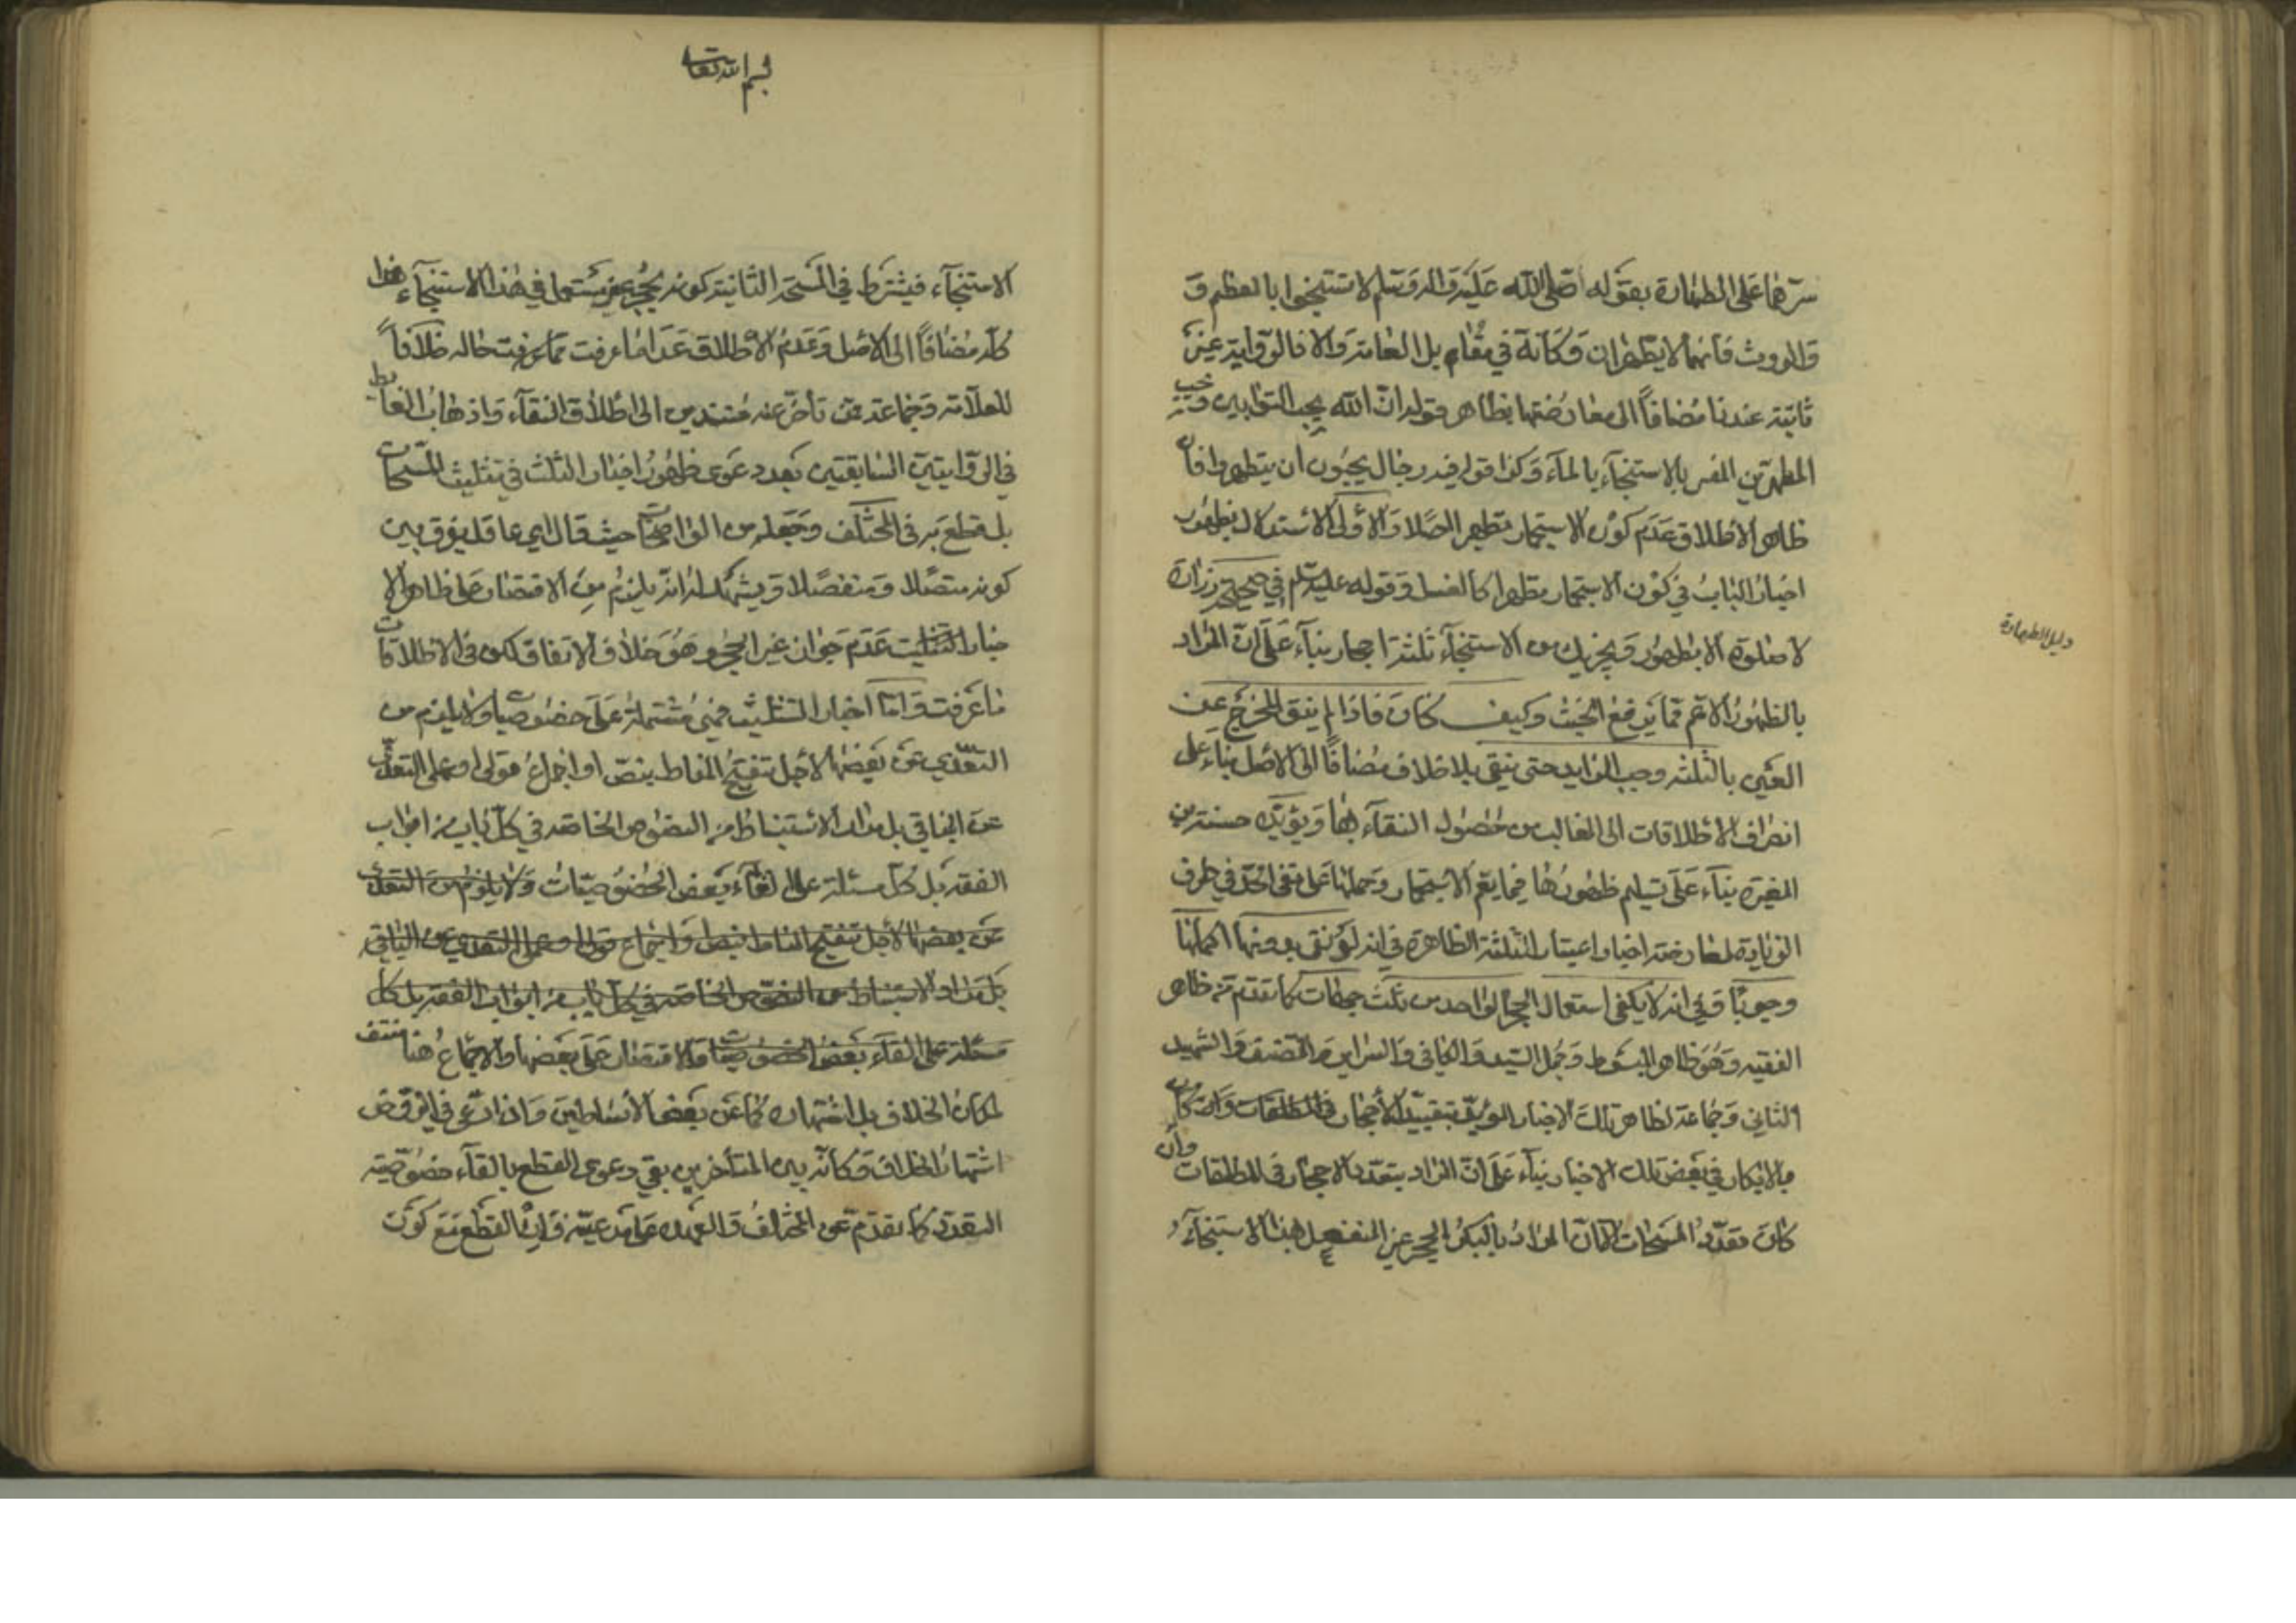 على الطهارة بقوله صلى الله عليه وآله وسلم لا تستنجوا بالعظم و
والروث فانهما لا يطهران وكانه في مقام بل العامة والا فالرواية غير
ثابتة عندنا مضافاً الى معارضتها بظاهر قوله ان الله يحب التوابين ويحب
المطهرين المفسر بالاستنجاء بالماء وكذا قوله فيه رجال يحبون ان يتطهروا فان
ظاهر الاطلاق عدم كون الاستجمار تطهيرا اصلا والاولى الاستدلال بظهور
اخبار الباب في كون الاستجمار مطهرا كالغسل وقوله عليه السلم في صحيحة زرارة
لا صلوة الا بطهور ويجزيك من الاستنجاء ثلثة احجار بناء على ان المراد
بالطهور الاعم مما يرفع الخبث وكيف كان فاذا لم ينق المخرج عن
العين بالثلثة وجب الزايد حتى ينقى بلا خلاف مضافاً الى الاصل بناء على
انصراف الاطلاقات الى الغالب من حصول النقاء بها ويؤيده حسنة ابن
المغيرة بناء على تسليم ظهورها فيما يعم الاستجمار وحملها على نفى الحد في طرف
الزيادة لمعارضة اخبار اعتبار الثلثة الظاهرة في انه لو نقى بدونها اكملها
وجوباً وفي انه لا يكفى استعمال الحجر الواحد من ثلث جهات كما تقدم من ظاهر
الفقيه وهو ظاهر المبسوط وجمل السيد والكافي والسراير والمصنف والشهيد
الثاني وجماعة لظاهر تلك الاخبار المؤيد بتقييد الاحجار في المطلقات وان كان
بالابكار في بعض تلك الاخبار بناء على ان المراد بتعدد الاحجار في المطلقات وان
كان تعدد المسحات الا ان المراد بالبكر الحجر غير المنفعل بهذا الاستنجاء
دليل الطهارة
بسم الله تعالى
الاستنجاء فيشترط في المسحة الثانية كونه بحجر غير مستعمل في هذا الاستنجاء هذا
كله مضافاً الى الاصل وعدم الاطلاق عدا ما عرفت مما عرفت حاله خلافاً
للعلامة وجماعة ممن تأخر عنه مستندين الى اطلاق النقاء واذهاب الغايط
في الروايتين السابقتين بعد دعوى ظهور اخبار الثلث في تثليث المسحات
بل قطع به في المختلف وجعله من الواضحات حيث قال اي عاقل يفرق بين
كونه متصلا ومنفصلا ويشهد له انه يلزم من الاقتصار على ظاهر الا
خبار التثليث عدم جواز غير الحجر وهو خلاف الاتفاق لكن في الاطلاقات
ما عرفت واما اخبار التثليث فهي مشتملة على خصوصيات ولا يلزم من
التعدي عن بعضها لاجل تنقيح المناط بنص او اجماع قولى او عملى التعدي
عن الباقي بل مدار الاستنباط من النصوص الخاصة في كل باب من ابواب
الفقه بل كل مسئلة على الغاء بعض الخصوصيات ولا يلزم من التعدي
عن بعضها لاجل تنقيح المناط بنص او اجماع قولى او عملى التعدي عن الباقي
بل مدار الاستنباط من النصوص الخاصة في كل باب من ابواب الفقه بل كل
مسئلة على القاء بعض الخصوصيات والاقتصار على بعضها والاجماع هنا منتف
لمكان الخلاف بل اشتهاره كما عن بعض الاساطين وان ادعى في الروض
اشتهار الخلاف وكانه بين المتأخرين بقي دعوى القطع بالقاء خصوصية
التعدد كما تقدم عن المختلف والعهدة على مدعيه وانى القطع مع كون